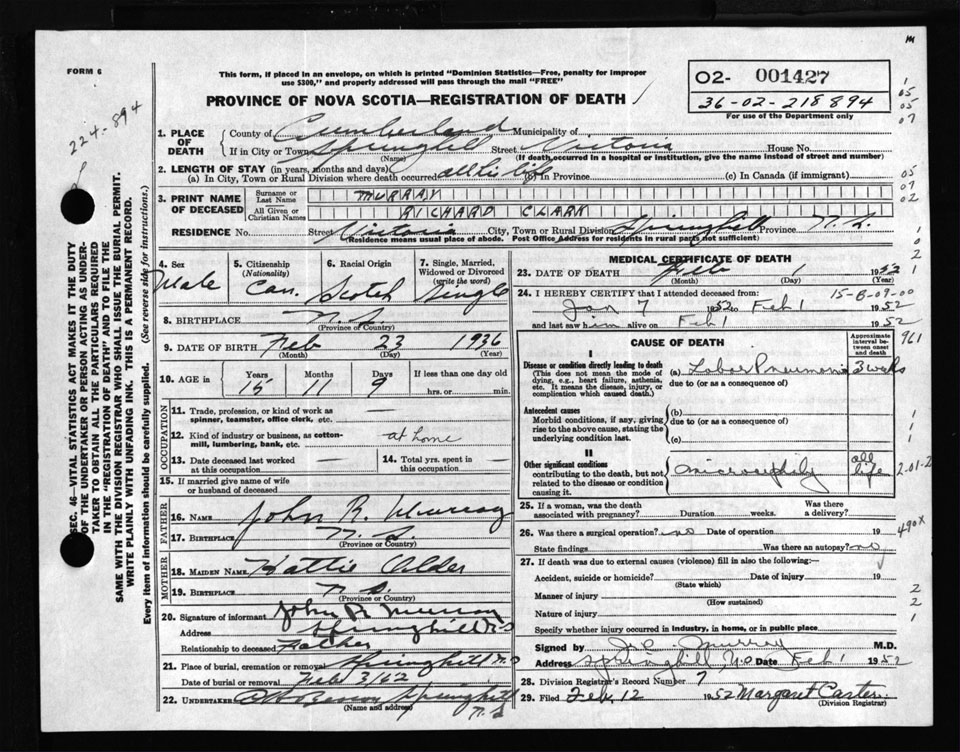 m
FORM 6
This form, if placed in an envelope, on which is printed "Dominion Statistics—Free, penalty for improper
use $300," and properly addressed will pass through the mail "FREE"
02- 001427
36-02-218894
For use of the Department only
PROVINCE OF NOVA SCOTIA—REGISTRATION OF DEATH
224-894
SEC. 46—VITAL STATISTICS ACT MAKES IT THE DUTY
OF THE UNDERTAKER OR PERSON ACTING AS UNDER-
TAKER TO OBTAIN ALL THE PARTICULARS REQUIRED
IN THE "REGISTRATION OF DEATH" AND TO FILE THE
SAME WITH THE DIVISION REGISTRAR WHO SHALL ISSUE THE BURIAL PERMIT.
WRITE PLAINLY WITH UNFADING INK. THIS IS A PERMANENT RECORD.
Every item of information should be carefully supplied. (See reverse side for instructions.)
1. PLACE OF DEATH
County of Cumberland Municipality of
If in City or Town Springhill Street Victoria House No.
(Name) (If death occurred in a hospital or institution, give the name instead of street and number)
2. LENGTH OF STAY (in years, months and days)
(a) In City, Town or Rural Division where death occurred all his life (b) In Province (c) In Canada (if immigrant)
3. PRINT NAME OF DECEASED
Surname or Last Name MURRAY
All Given or Christian Names RICHARD CLARK
RESIDENCE No. Street Victoria City, Town or Rural Division Springhill Province N.S.
(Residence means usual place of abode. Post Office Address for residents in rural parts not sufficient)
4. Sex Male
5. Citizenship (Nationality) Can.
6. Racial Origin Scotch
7. Single, Married, Widowed or Divorced (write the word) Single
8. BIRTHPLACE N.S.
(Province or Country)
9. DATE OF BIRTH Feb 23 1936
(Month) (Day) (Year)
10. AGE in Years Months Days If less than one day old
15 11 9 hrs. or min.
OCCUPATION
11. Trade, profession, or kind of work as spinner, teamster, office clerk, etc. —
12. Kind of industry or business, as cotton-mill, lumbering, bank, etc. at home
13. Date deceased last worked at this occupation —
14. Total yrs. spent in this occupation —
15. If married give name of wife or husband of deceased
FATHER
16. NAME John R Murray
17. BIRTHPLACE N.S.
(Province or Country)
MOTHER
18. MAIDEN NAME Hattie Alder
19. BIRTHPLACE N.S.
(Province or Country)
20. Signature of informant John R Murray
Address Springhill N.S
Relationship to deceased Father
21. Place of burial, cremation or removal Springhill N.S
Date of burial or removal Feb 3/52
22. UNDERTAKER Springhill
(Name and address) N.S
MEDICAL CERTIFICATE OF DEATH
23. DATE OF DEATH Feb 1 1952
(Month) (Day) (Year)
24. I HEREBY CERTIFY that I attended deceased from: 15-B-09-00
Jan 7 1952 to Feb 1 1952
and last saw him alive on Feb 1 1952
CAUSE OF DEATH
Approximate interval between onset and death
961
I
Disease or condition directly leading to death
(This does not mean the mode of dying, e.g., heart failure, asthenia, etc. It means the disease, injury, or complication which caused death.)
(a) Lobar Pneumonia 3 weeks
due to (or as a consequence of)
Antecedent causes
Morbid conditions, if any, giving rise to the above cause, stating the underlying condition last.
(b)
due to (or as a consequence of)
(c)
II
Other significant conditions
contributing to the death, but not related to the disease or condition causing it.
all life
2-01-2
25. If a woman, was the death associated with pregnancy? Duration weeks. Was there a delivery?
26. Was there a surgical operation? no Date of operation 19
490X
State findings Was there an autopsy? no
27. If death was due to external causes (violence) fill in also the following:—
Accident, suicide or homicide? Date of injury 19
(State which)
Manner of injury
(How sustained)
Nature of injury
Specify whether injury occurred in industry, in home, or in public place
Signed by Murray M.D.
Address Springhill N.S Date Feb 1 1952
28. Division Registrar's Record Number 7
29. Filed Feb. 12 1952 Margaret Carter
(Division Registrar)